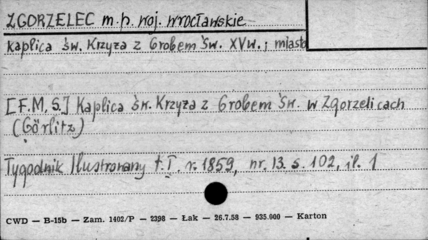 ZGORZELEC m.p. woj. wrocławskie
kaplica św. Krzyża z Grobem Św. XVw.; miasto
[F.M.S.] Kaplica św. Krzyża z Grobem Św. w Zgorzelicach
(Görlitz)
Tygodnik Ilustrowany t. I. r. 1859, nr. 13. s. 102, il. 1
CWD — B-15b — Zam. 1402/P — 2398 — Łak — 26.7.58 — 935.000 — Karton